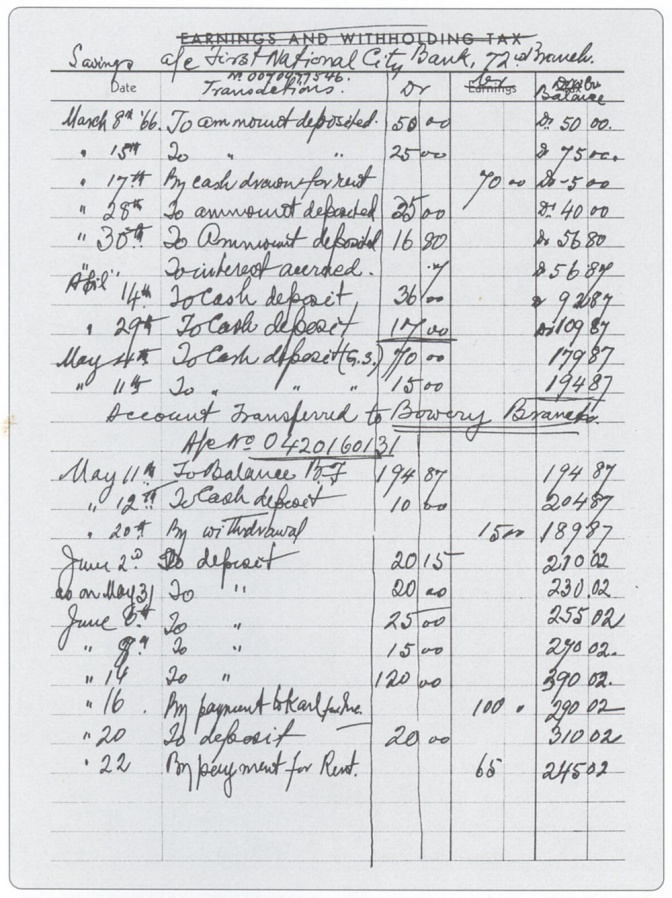 EARNINGS AND WITHHOLDING TAX
Savings a/c First National City Bank, 72nd Branch.
Date Transactions. Dr Earnings Balance
March 8th '66. To ammount deposited. 50 00 Dr 50 00.
" 15th To " " 25 00 Dr 75 00.
" 17th By cash drawn for rent 70 00 Dr 5 00
" 28th To ammount deposited 35 00 Dr 40 00
" 30th To Ammount deposited 16 80 Dr 56 80
" To interest accrued. .7 Dr 56 87
April 14th To Cash deposit 36 00 Dr 92 87
" 29th To Cash deposit 17 00 Dr 109 87
May 4th To Cash deposit (G.S.) 70 00 179 87
" 11th To " " " 15 00 194 87
Account Transferred to Bowery Branch.
A/c No 0420160131
May 11th To Balance B.F 194 87 194 87
" 12th To Cash deposit 10 00 204 87
" 20th By withdrawal 15 00 189 87
June 2nd To deposit 20 15 210 02
as on May 31 To " 20 00 230.02
June 6th To " 25 00 255 02
" 9th To " 15 00 270 02.
" 14 To " 120 00 390 02.
" 16. By payment to Karl 100 " 290 02
" 20 To deposit 20 00 310 02
" 22 By payment for Rent. 65 245 02